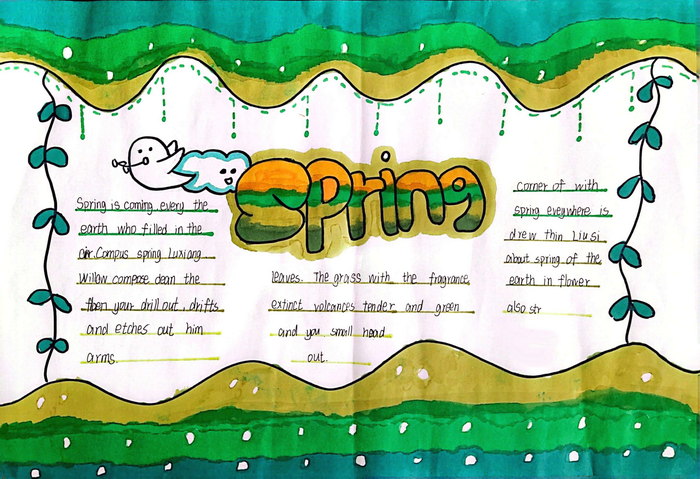 Spring
Spring is coming. every the
earth who filled in the
air. Compus spring Luxiang
Willow compose dean the
then your drill out, drifts
and etches out him
arms.
leaves. The grass with the fragrance
extinct volcances tender and green
and you small head
out.
corner of with
spring eveywhere is
drew thin Liusi
about spring of the
earth in flower
also str